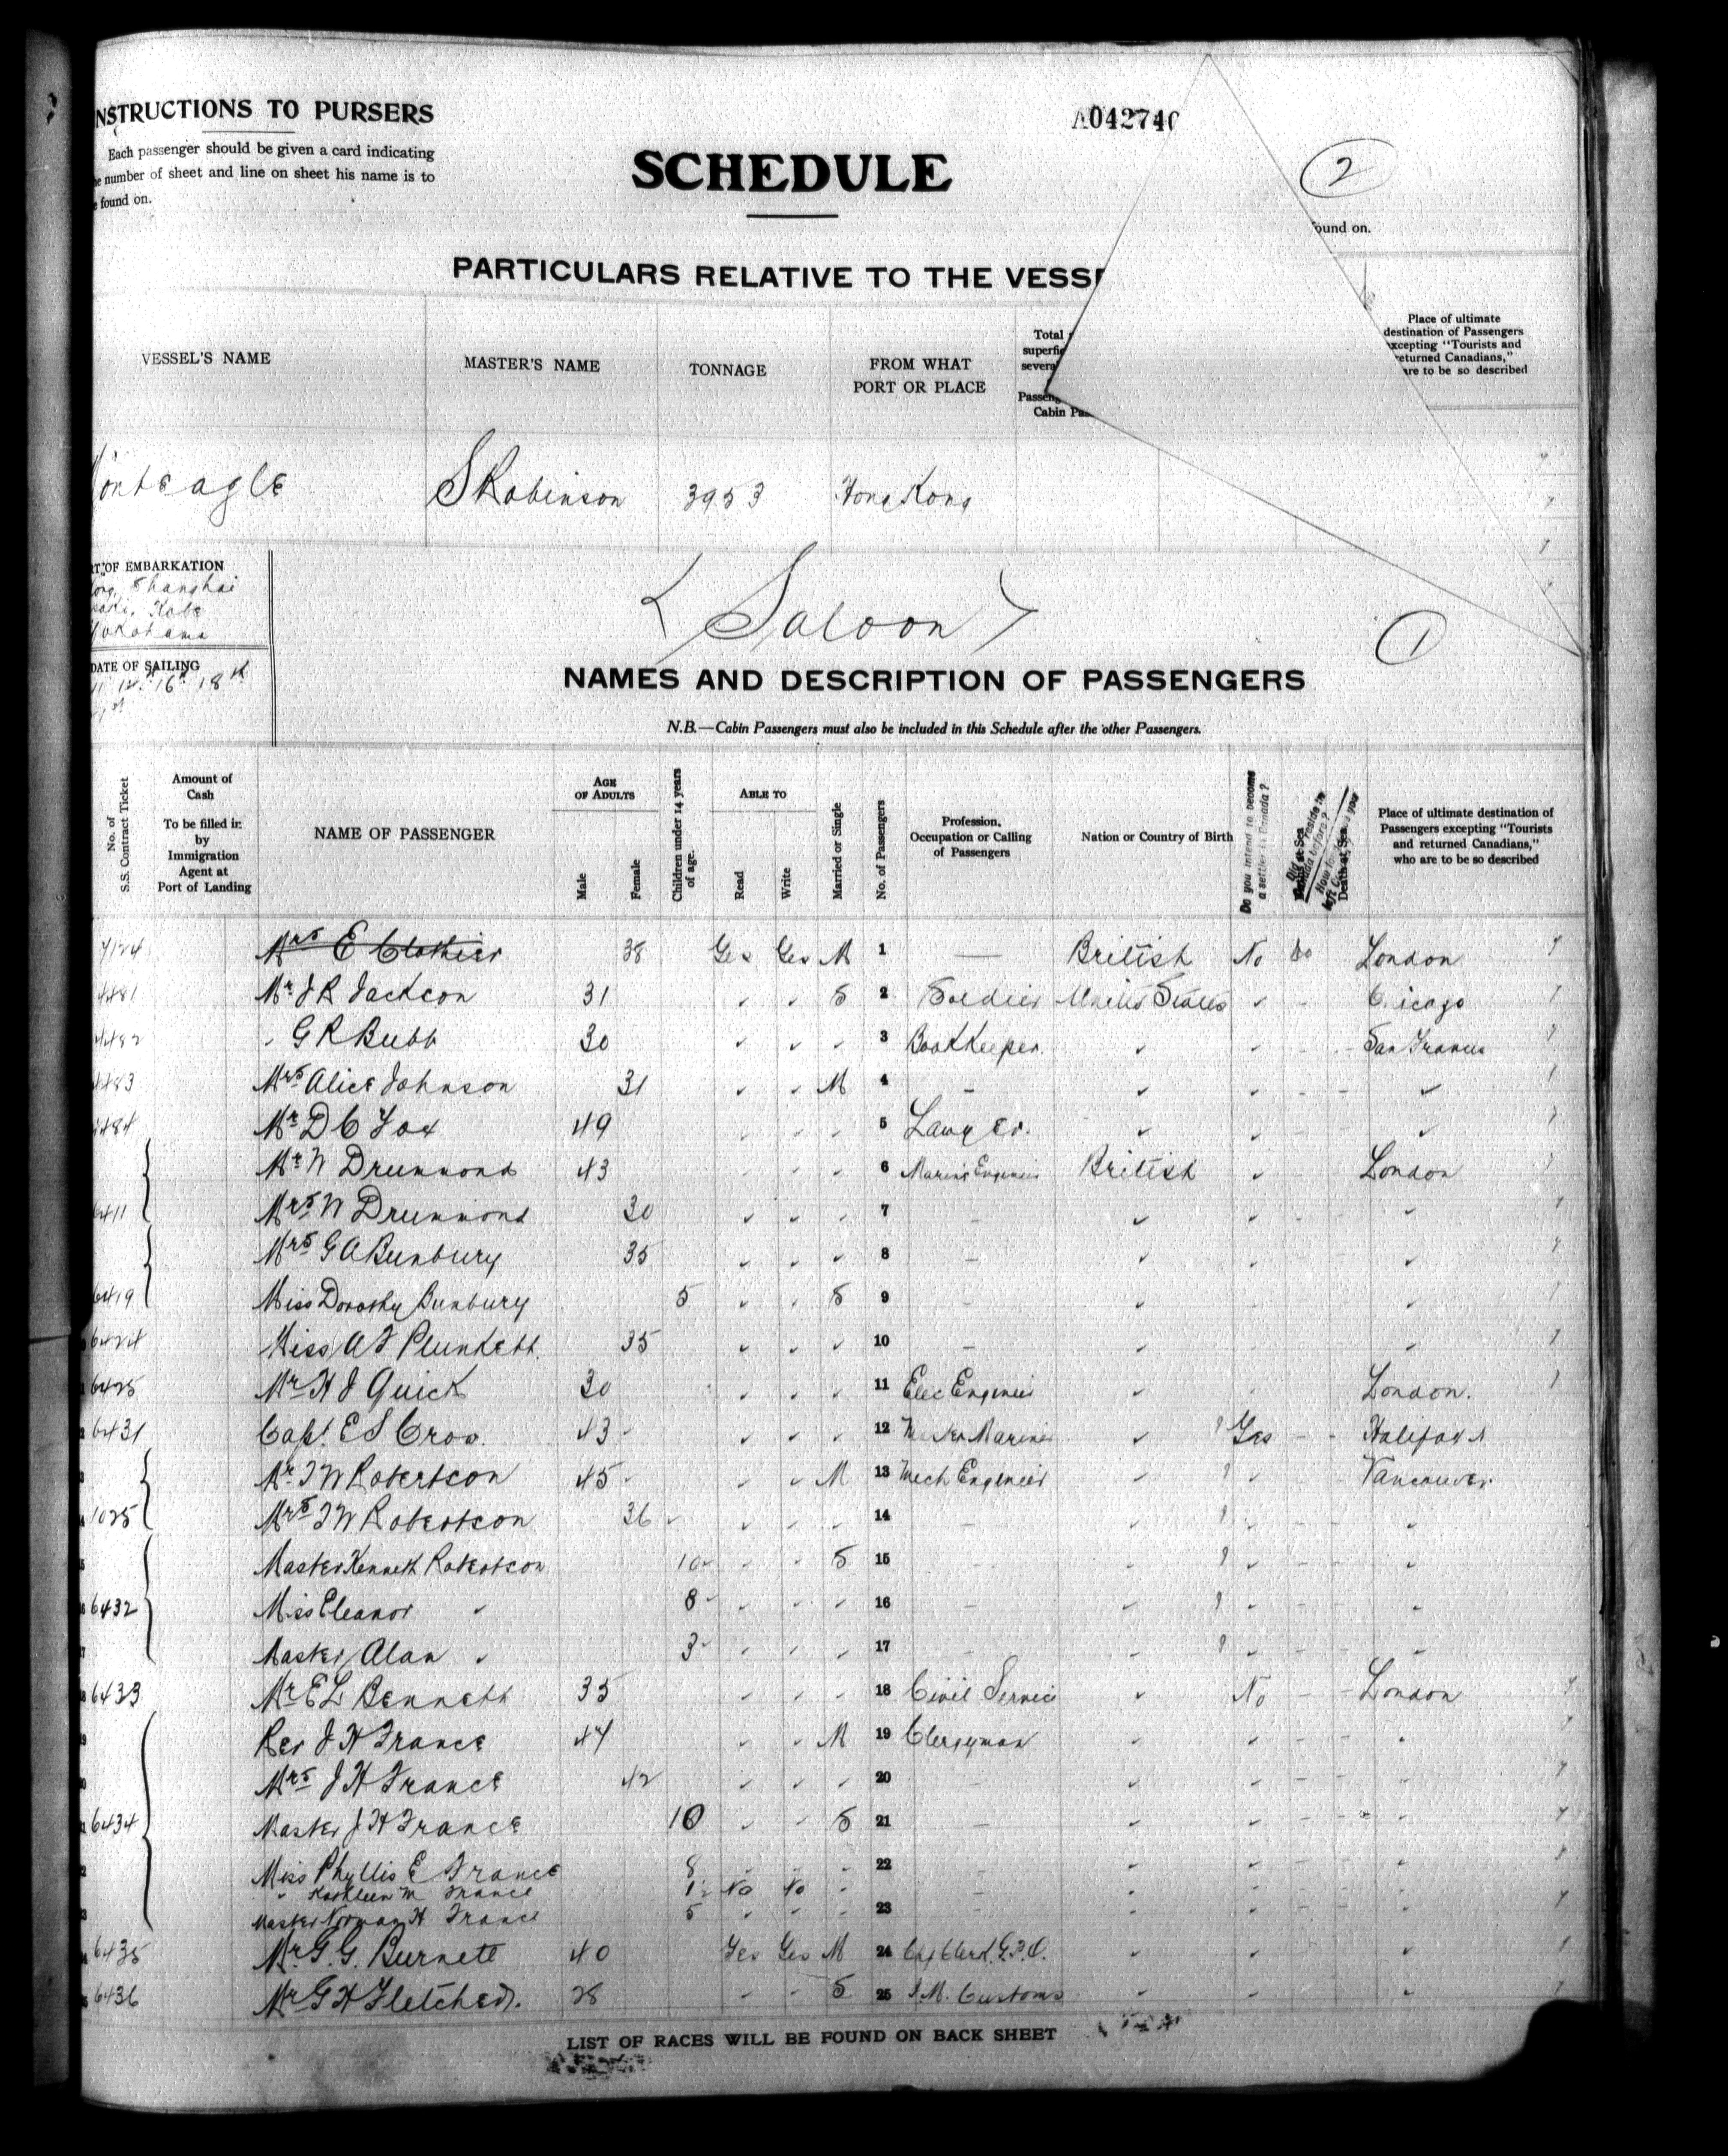 NSTRUCTIONS TO PURSERS
Each passenger should be given a card indicating
number of sheet and line on sheet his name is to
found on.
A04274
SCHEDULE
2
ound on.
PARTICULARS RELATIVE TO THE VESS
VESSEL'S NAME
MASTER'S NAME
TONNAGE
FROM WHAT
PORT OR PLACE
Total
superfi
severa
Passeng
Cabin Pas
Place of ultimate
destination of Passengers
xcepting "Tourists and
eturned Canadians,"
are to be so described
onteagle S Robinson 3953 Hong Kong
T OF EMBARKATION
ong, Shanghai
Kobe
Yokohama
DATE OF SAILING
12. 16th 18th
Saloon
1
NAMES AND DESCRIPTION OF PASSENGERS
N.B.—Cabin Passengers must also be included in this Schedule after the other Passengers.
No. of
S.S. Contract Ticket
Amount of
Cash
To be filled in
by
Immigration
Agent at
Port of Landing
NAME OF PASSENGER
AGE
OF ADULTS
Male
Female
Children under 14 years
of age.
ABLE TO
Read
Write
Married or Single
No. of Passengers
Profession,
Occupation or Calling
of Passengers
Nation or Country of Birth
Do you intend to become
a settler in Canada?
Place of ultimate destination of
Passengers excepting "Tourists
and returned Canadians,"
who are to be so described
Mrs E Clothier 38 Yes Yes M 1 — British No do London
Mr J R Jackson 31 " " S 2 Soldier United States " - C icago
" G R Bubb 30 " " " 3 Bookkeeper. " " - San Francis
483 Mrs Alice Johnson 31 " " M 4 - " " - "
484 Mr D C Fox 49 " " " 5 Lawyer. " " - "
Mr W Drummond 43 " " " 6 Marine Engineer British " London
6411 Mrs W Drummond 30 " " " 7 - " " - "
Mrs G A Bunbury 35 " " " 8 - " " "
6419 Miss Dorothy Bunbury 5 " " S 9 - " "
6424 Miss A F Plunkett. 35 " " " 10 - " "
6425 Mr H J Quick 30 " " " 11 Elec Engineer " London.
6431 Capt. E S Crow. 43 " " " 12 Master Mariner " Yes - - Halifax
Mr T W Robertson 45 " " M 13 Mech Engineer " " Vancouver
1025 Mrs T W Robertson 36 " " " 14 - " " - - "
Master Kenneth Robertson 10 " " S 15 - " " - - "
6432 Miss Eleanor " 8 " " " 16 - " " - - "
Master Alan " 3 " " " 17 - " " - - "
6433 Mr E L Bennett 35 " " " 18 Civil Service " No - - London
Rev J H France 44 " " M 19 Clergyman " " - - "
Mrs J H France 42 " " " 20 - " " - - "
6434 Master J H France 10 " " S 21 - " " - - "
Miss Phyllis E France 8 - - - 22 - " " - - "
" Kathleen M France 1½ No No - - " " - - "
Master Norman H France 5 " " - 23 - " " - - "
6435 Mr G. G. Burnett 40 Yes Yes M 24 Clerk G.P.O. " " "
6436 Mr G H Fletcher. 28 " " S 25 I.M. Customs " " "
LIST OF RACES WILL BE FOUND ON BACK SHEET